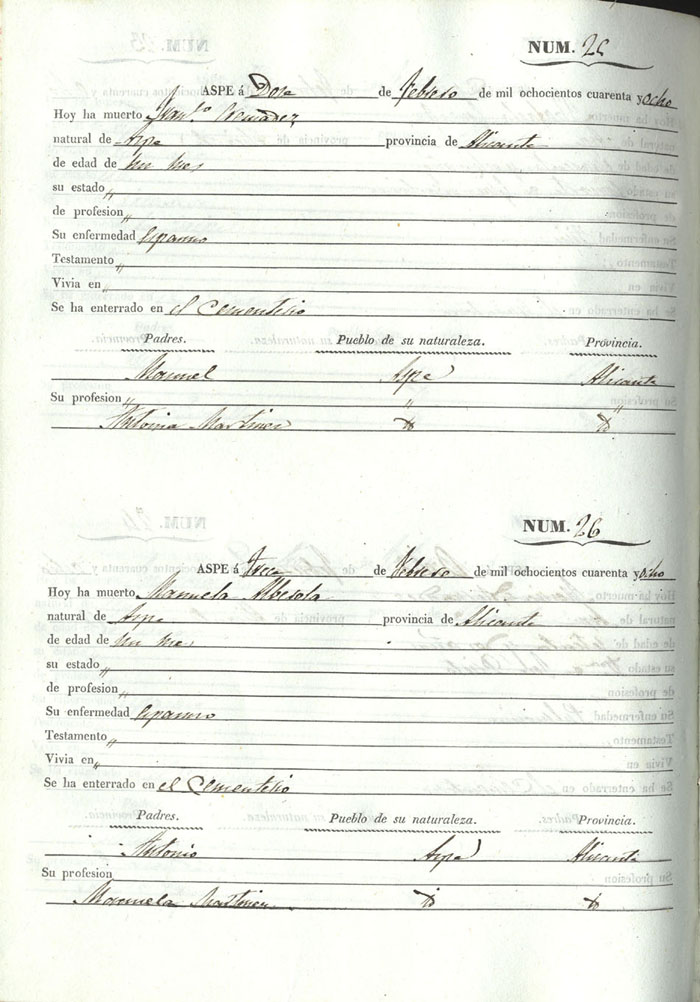 NUM. 25
ASPE á Doce de Febrero de mil ochocientos cuarenta y ocho
Hoy ha muerto Cremadez
natural de Aspe provincia de Alicante
de edad de un mes
su estado „
de profesion „
Su enfermedad Espasmo
Testamento „
Vivia en „
Se ha enterrado en el Cementerio
Padres. Pueblo de su naturaleza. Provincia.
Manuel Aspe Alicante
Su profesion „ „ „
Antonia Martinez
NUM. 26
ASPE á Trece de Febrero de mil ochocientos cuarenta y ocho
Hoy ha muerto Manuela Alberola
natural de Aspe provincia de Alicante
de edad de un mes
su estado „
de profesion „
Su enfermedad Espasmo
Testamento „
Vivia en „
Se ha enterrado en el Cementerio
Padres. Pueblo de su naturaleza. Provincia.
Antonio Aspe Alicante
Su profesion
Manuela Martinez